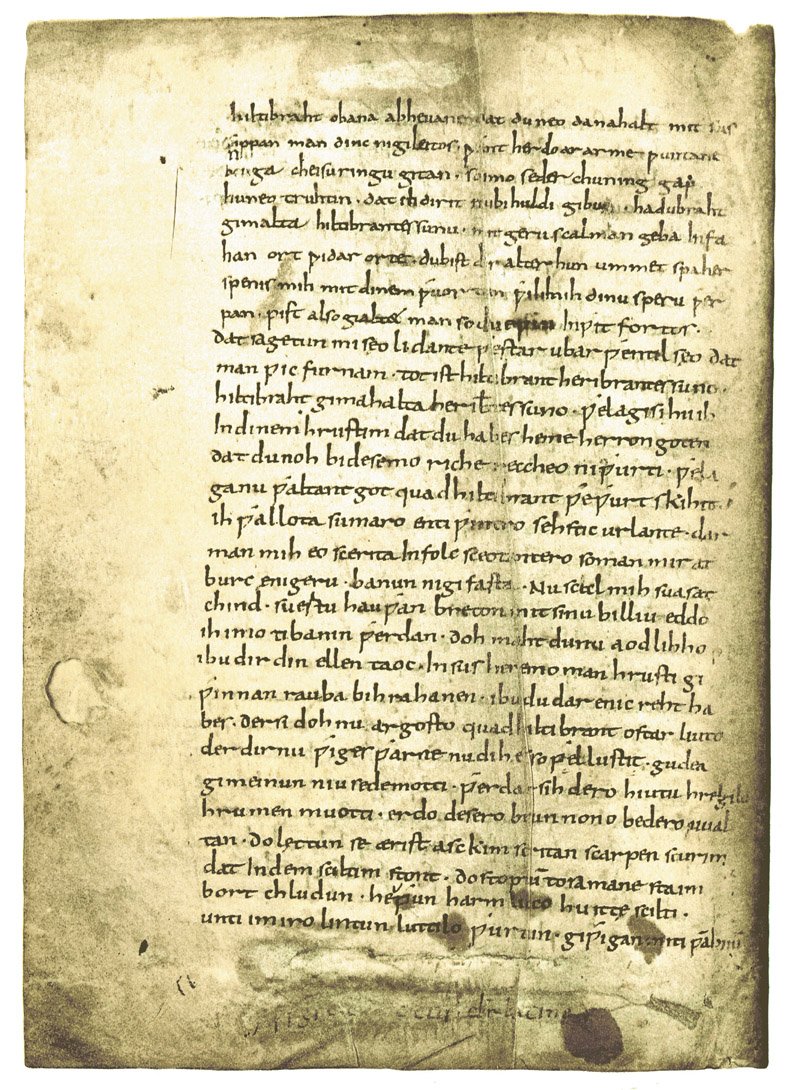 hiltibraht obana abheuane dat du neo dana halt mit sus
sippan man dinc ni gileitos · ƿant her do ar arme ƿuntane
bauga cheisuringu gitan · so imo se der chuning gap
huneo truhtin · dat ih dir it nu bi huldi gibu · hadubraht
gimalta hiltibrantes sunu · mit geru scal man geba infa
han ort ƿidar orte · du bist dir alter hun ummet spaher
spenis mih mit dinem ƿuortun ƿili mih dinu speru ƿer
pan · pist also gialtet man so du eƿin inƿit fortos ·
dat sagetun mi seo lidante ƿestar ubar ƿentilseo dat
man ƿic furnam · tot ist hiltibrant heribrantes suno ·
hiltibraht gimahalta heribtes suno · ƿela gisihu ih
In dinem hrustim dat du habes heme herron goten
dat du noh bi desemo riche reccheo ni ƿurti · ƿela
ga nu ƿaltant got quad hiltibrant ƿeƿurt skihit ·
ih ƿallota sumaro enti ƿintro sehstic ur lante · dar
man mih eo scerita In folc sceotantero so man mir at
burc enigeru · banun ni gifasta · Nu scal mih suasat
chind · suertu hauƿan breton mit sinu billiu eddo
ih imo ti banin ƿerdan · doh maht du nu aodlihho
ibu dir din ellen taoc · In sus heremo man hrusti gi
ƿinnan rauba bihrahanen · ibu du dar enic reht ha
bes · der si doh nu argosto quad hiltibrant ostarliuto
der dir nu ƿiges ƿarne nu dih es so ƿel lustit · gudea
gimeinun niuse de motti · ƿerdar sih dero hiutu hregilo
hrumen muotti · erdo desero brunnono bedero uual
tan · do lęttun se ærist asckim scritan scarpen scurim
dat In dem sciltim stont · do stoptū to samane staim
bort chludun · heƿun harmlicco huitte scilti ·
unti im iro lintun luttilo ƿurtun · giƿigan miti ƿābnū